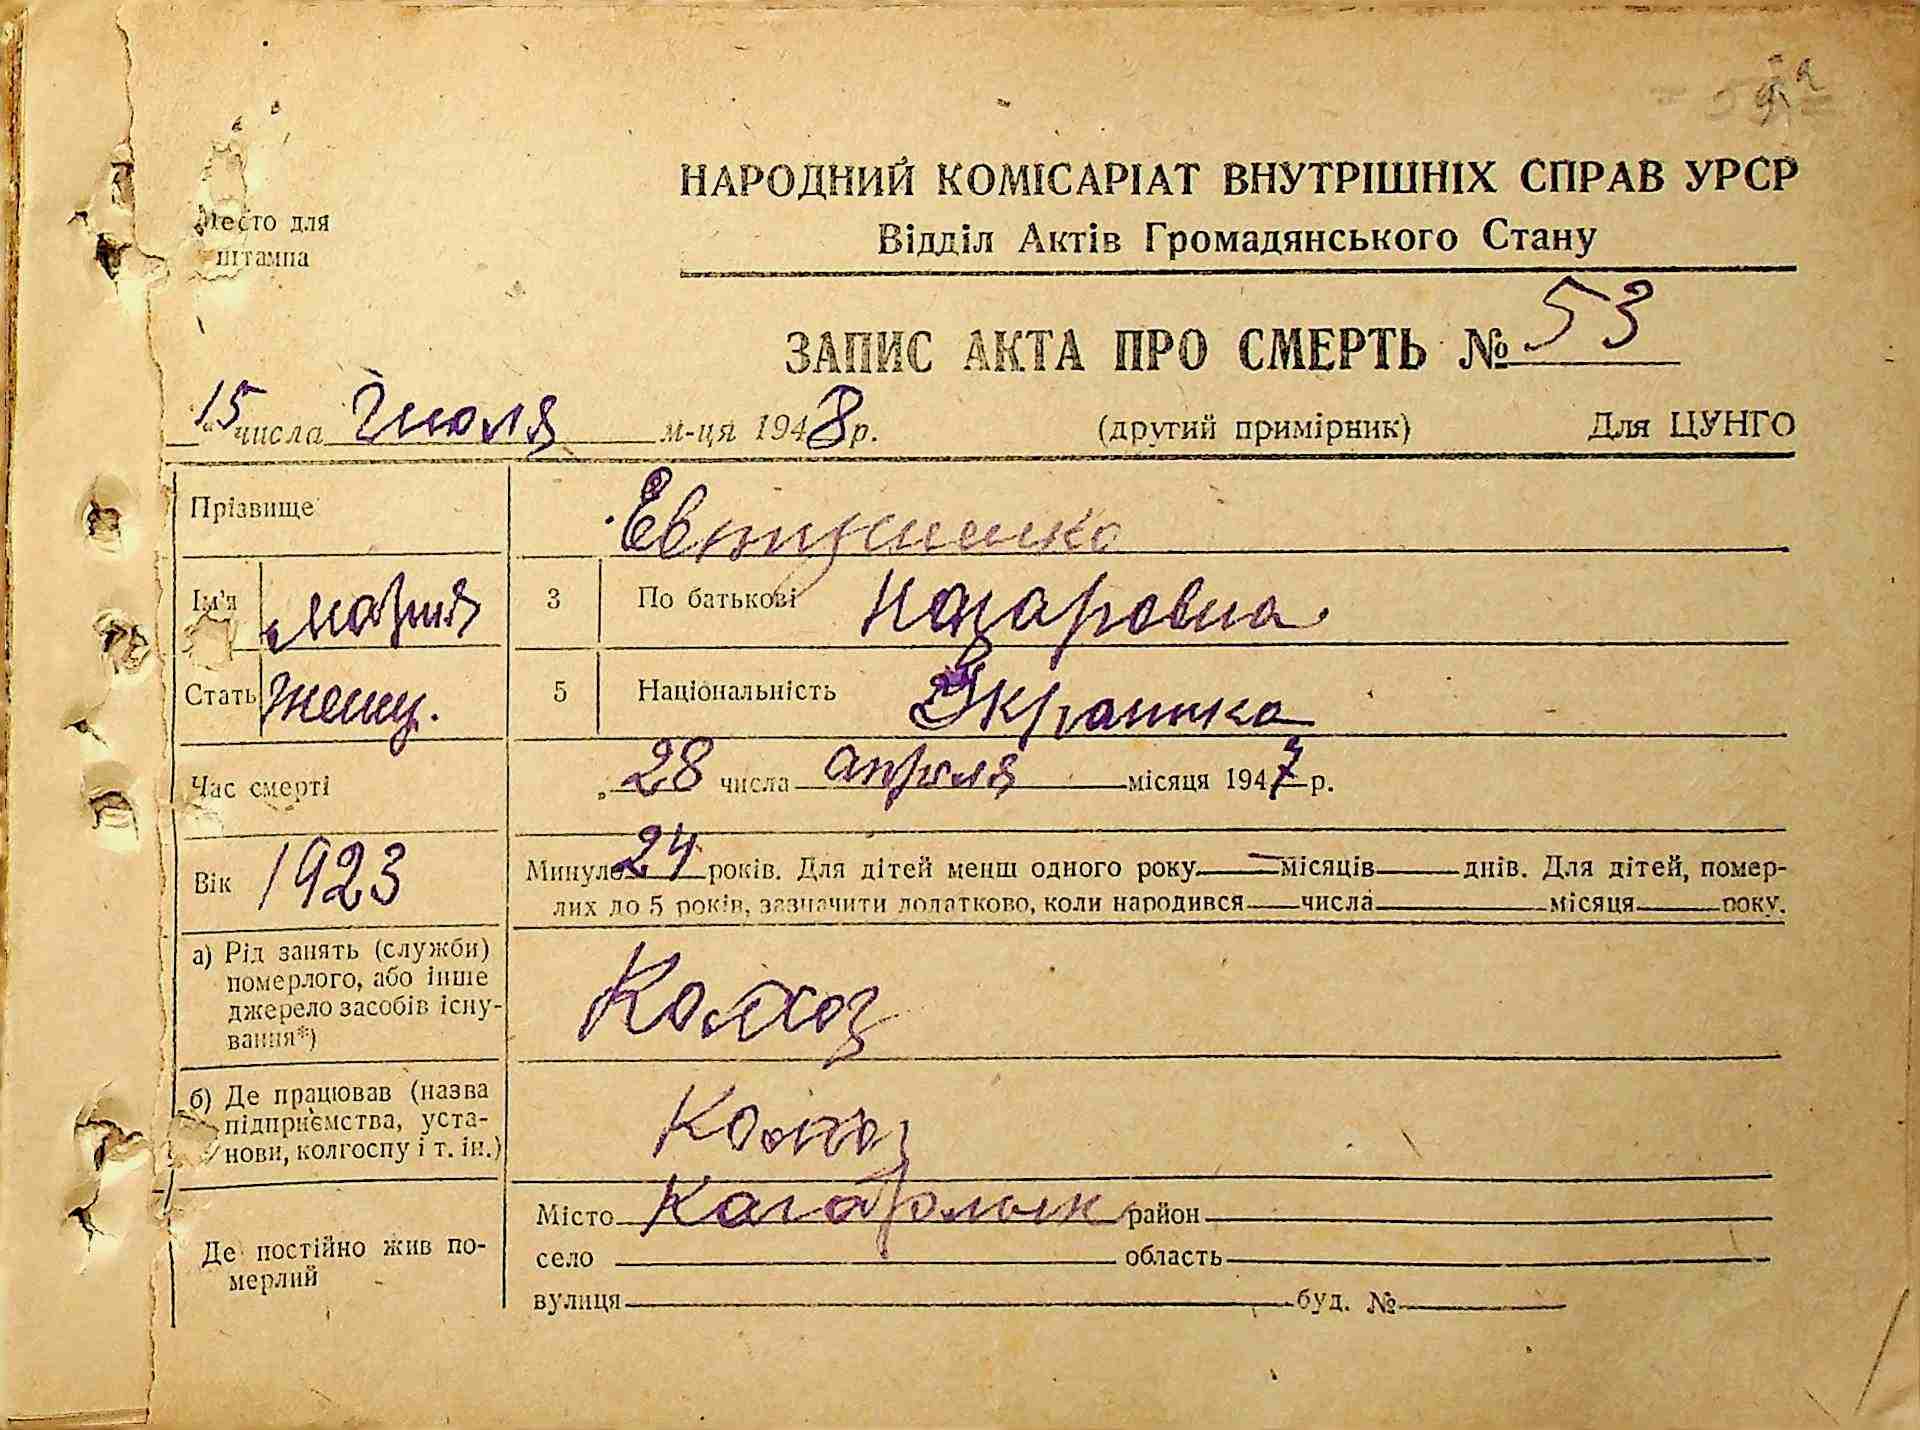 Место для
штампа
НАРОДНИЙ КОМІСАРІАТ ВНУТРІШНІХ СПРАВ УРСР
Відділ Актів Громадянського Стану
ЗАПИС АКТА ПРО СМЕРТЬ № 53
15 числа Июля м-ця 1948 р. (другий примірник) Для ЦУНГО
Прізвище Евтушенко
Ім'я Мария 3 По батькові Назаровна
Стать Женщ. 5 Національність Украинка
Час смерті 28 числа апреля місяця 1947 р.
Вік 1923 Минуло 24 років. Для дітей менш одного року — місяців — днів. Для дітей, помер-
лих до 5 років, зазначити додатково, коли народився — числа місяця року.
а) Рід занять (служби)
померлого, або інше
джерело засобів існу-
вання*)
Колхоз
б) Де працював (назва
підприємства, уста-
нови, колгоспу і т. ін.)
Колхоз
Де постійно жив по-
мерлий
Місто Кагарлык район
село область
вулиця буд. №